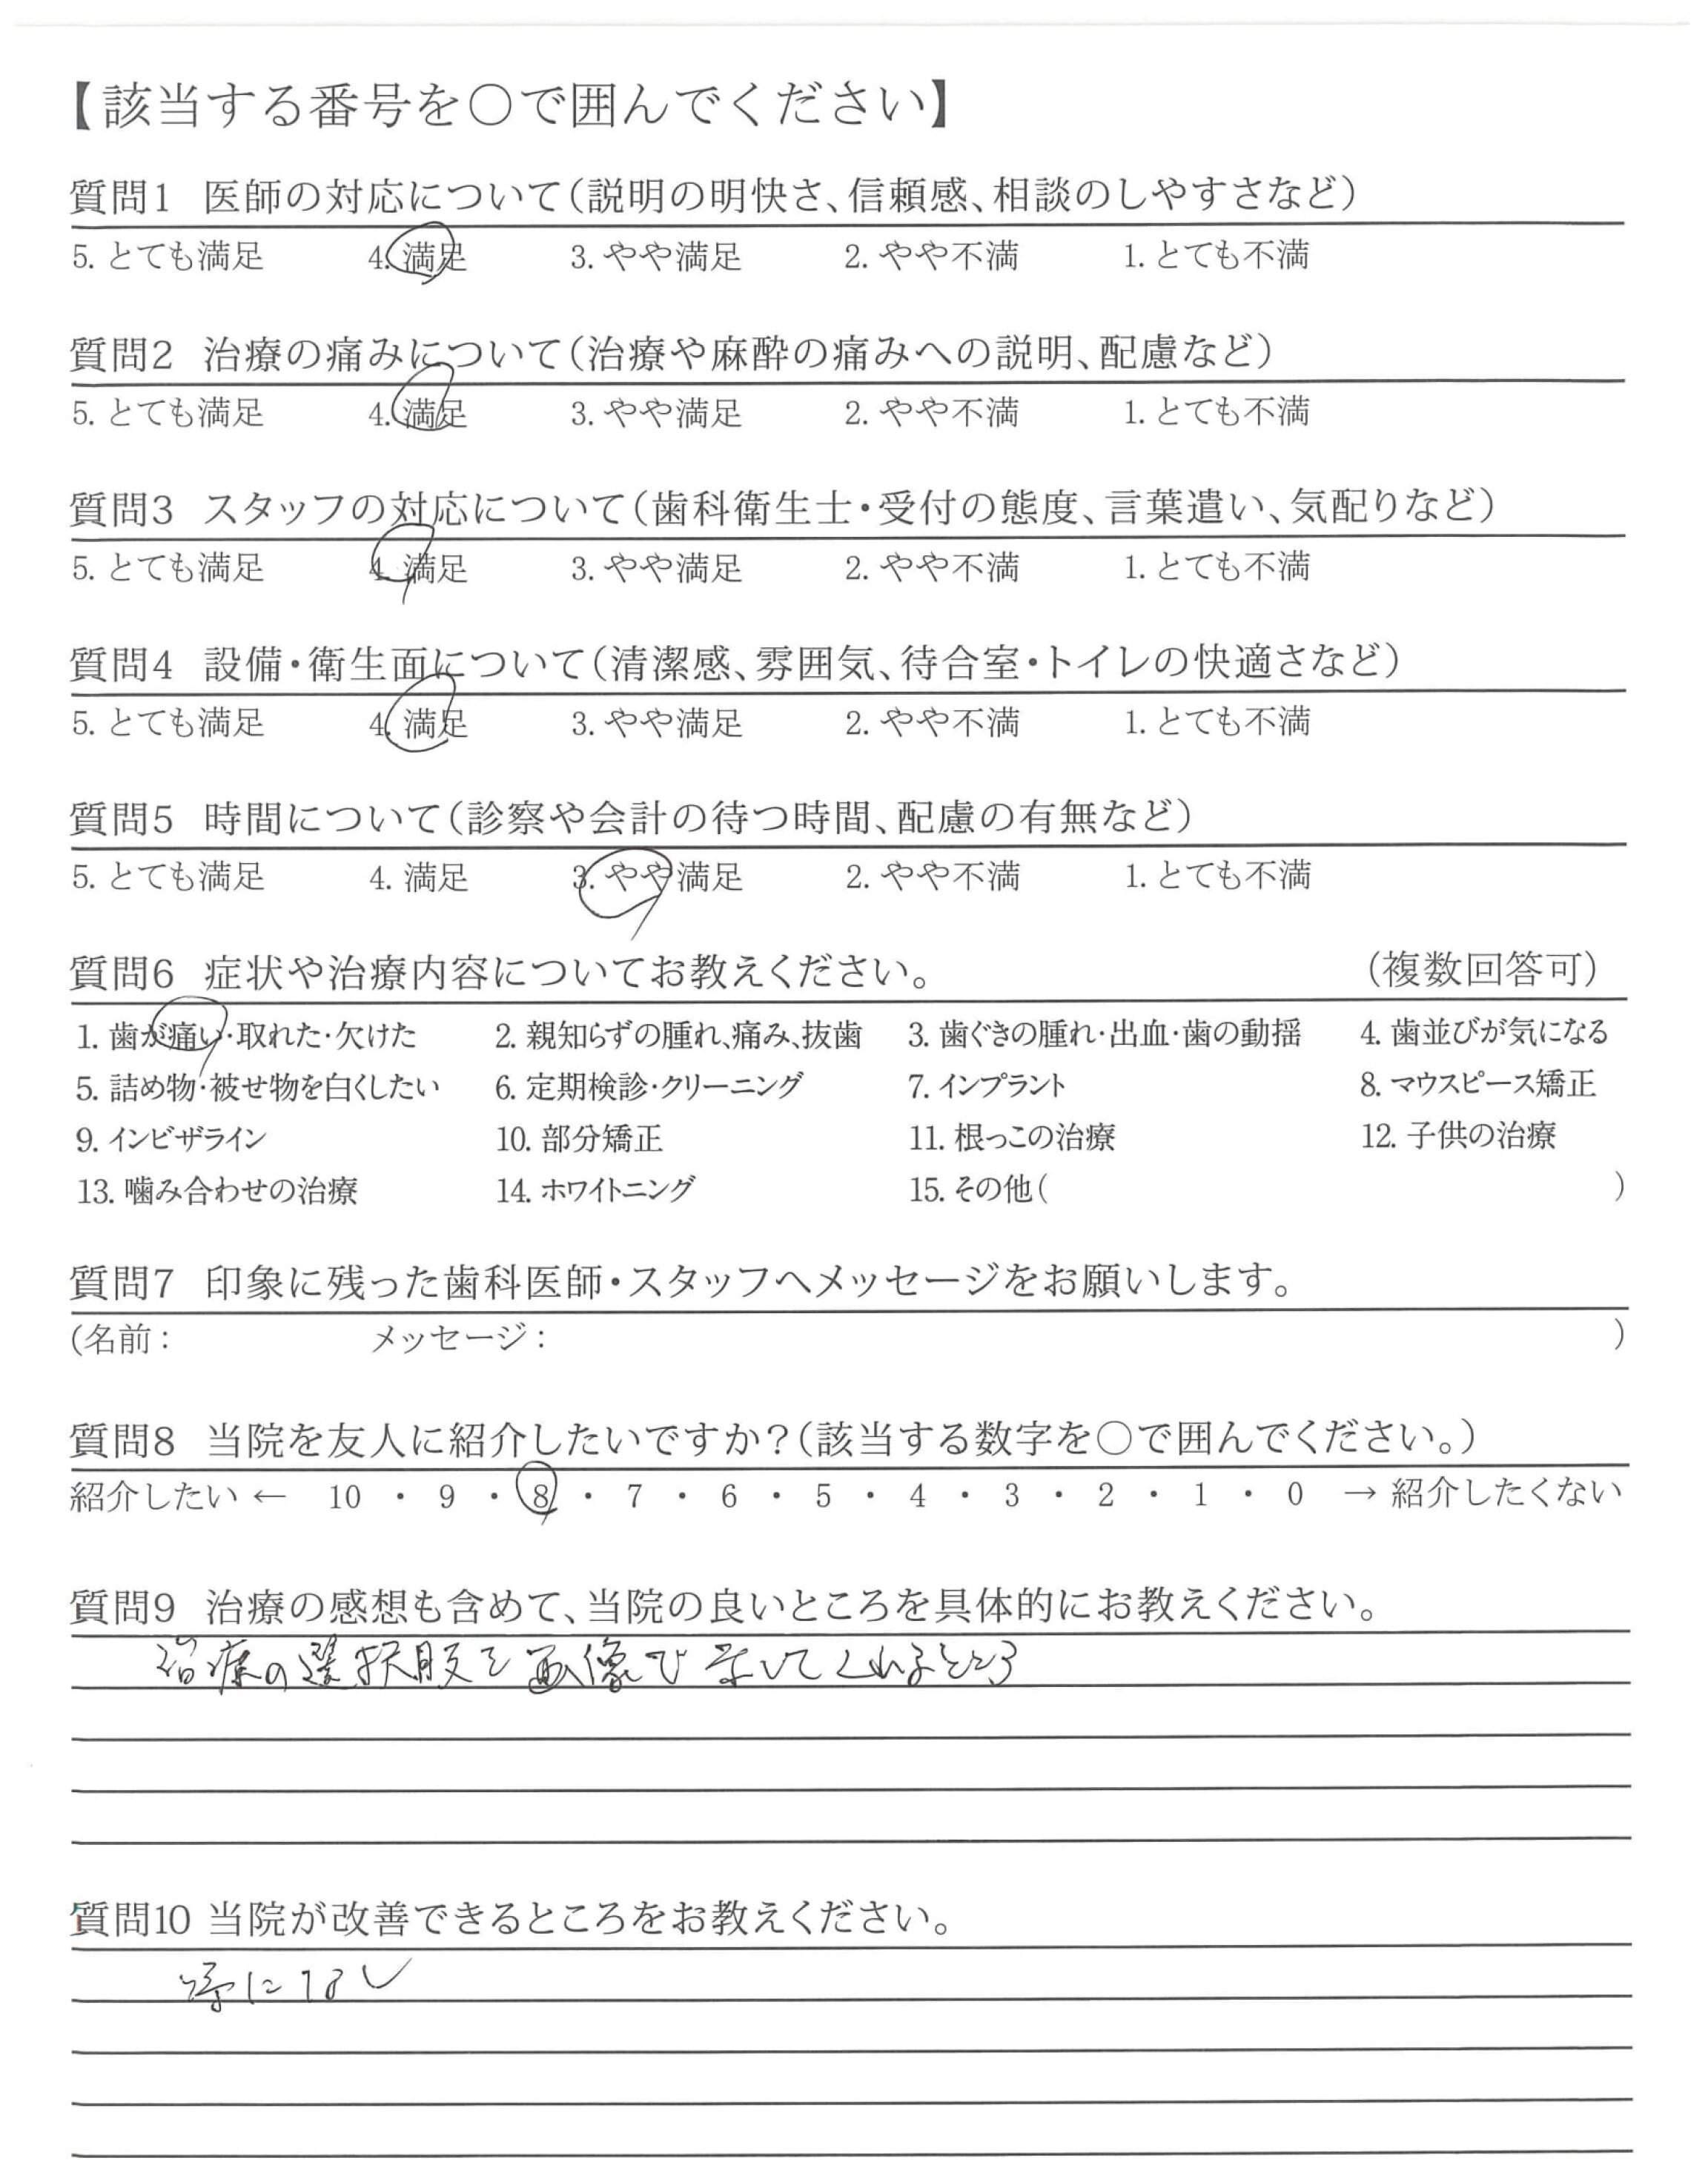 【該当する番号を○で囲んでください】
質問1 医師の対応について(説明の明快さ、信頼感、相談のしやすさなど)
5. とても満足 4. 満足 3. やや満足 2. やや不満 1. とても不満
質問2 治療の痛みについて(治療や麻酔の痛みへの説明、配慮など)
5. とても満足 4. 満足 3. やや満足 2. やや不満 1. とても不満
質問3 スタッフの対応について(歯科衛生士・受付の態度、言葉遣い、気配りなど)
5. とても満足 4. 満足 3. やや満足 2. やや不満 1. とても不満
質問4 設備・衛生面について(清潔感、雰囲気、待合室・トイレの快適さなど)
5. とても満足 4. 満足 3. やや満足 2. やや不満 1. とても不満
質問5 時間について(診察や会計の待つ時間、配慮の有無など)
5. とても満足 4. 満足 3. やや満足 2. やや不満 1. とても不満
質問6 症状や治療内容についてお教えください。 (複数回答可)
1. 歯が痛い・取れた・欠けた 2. 親知らずの腫れ、痛み、抜歯 3. 歯ぐきの腫れ・出血・歯の動揺 4. 歯並びが気になる
5. 詰め物・被せ物を白くしたい 6. 定期検診・クリーニング 7. インプラント 8. マウスピース矯正
9. インビザライン 10. 部分矯正 11. 根っこの治療 12. 子供の治療
13. 噛み合わせの治療 14. ホワイトニング 15. その他( )
質問7 印象に残った歯科医師・スタッフへメッセージをお願いします。
(名前: メッセージ: )
質問8 当院を友人に紹介したいですか?(該当する数字を○で囲んでください。)
紹介したい ← 10 ・ 9 ・ 8 ・ 7 ・ 6 ・ 5 ・ 4 ・ 3 ・ 2 ・ 1 ・ 0 → 紹介したくない
質問9 治療の感想も含めて、当院の良いところを具体的にお教えください。
治療の選択肢を画像で示してくれるところ
質問10 当院が改善できるところをお教えください。
特になし